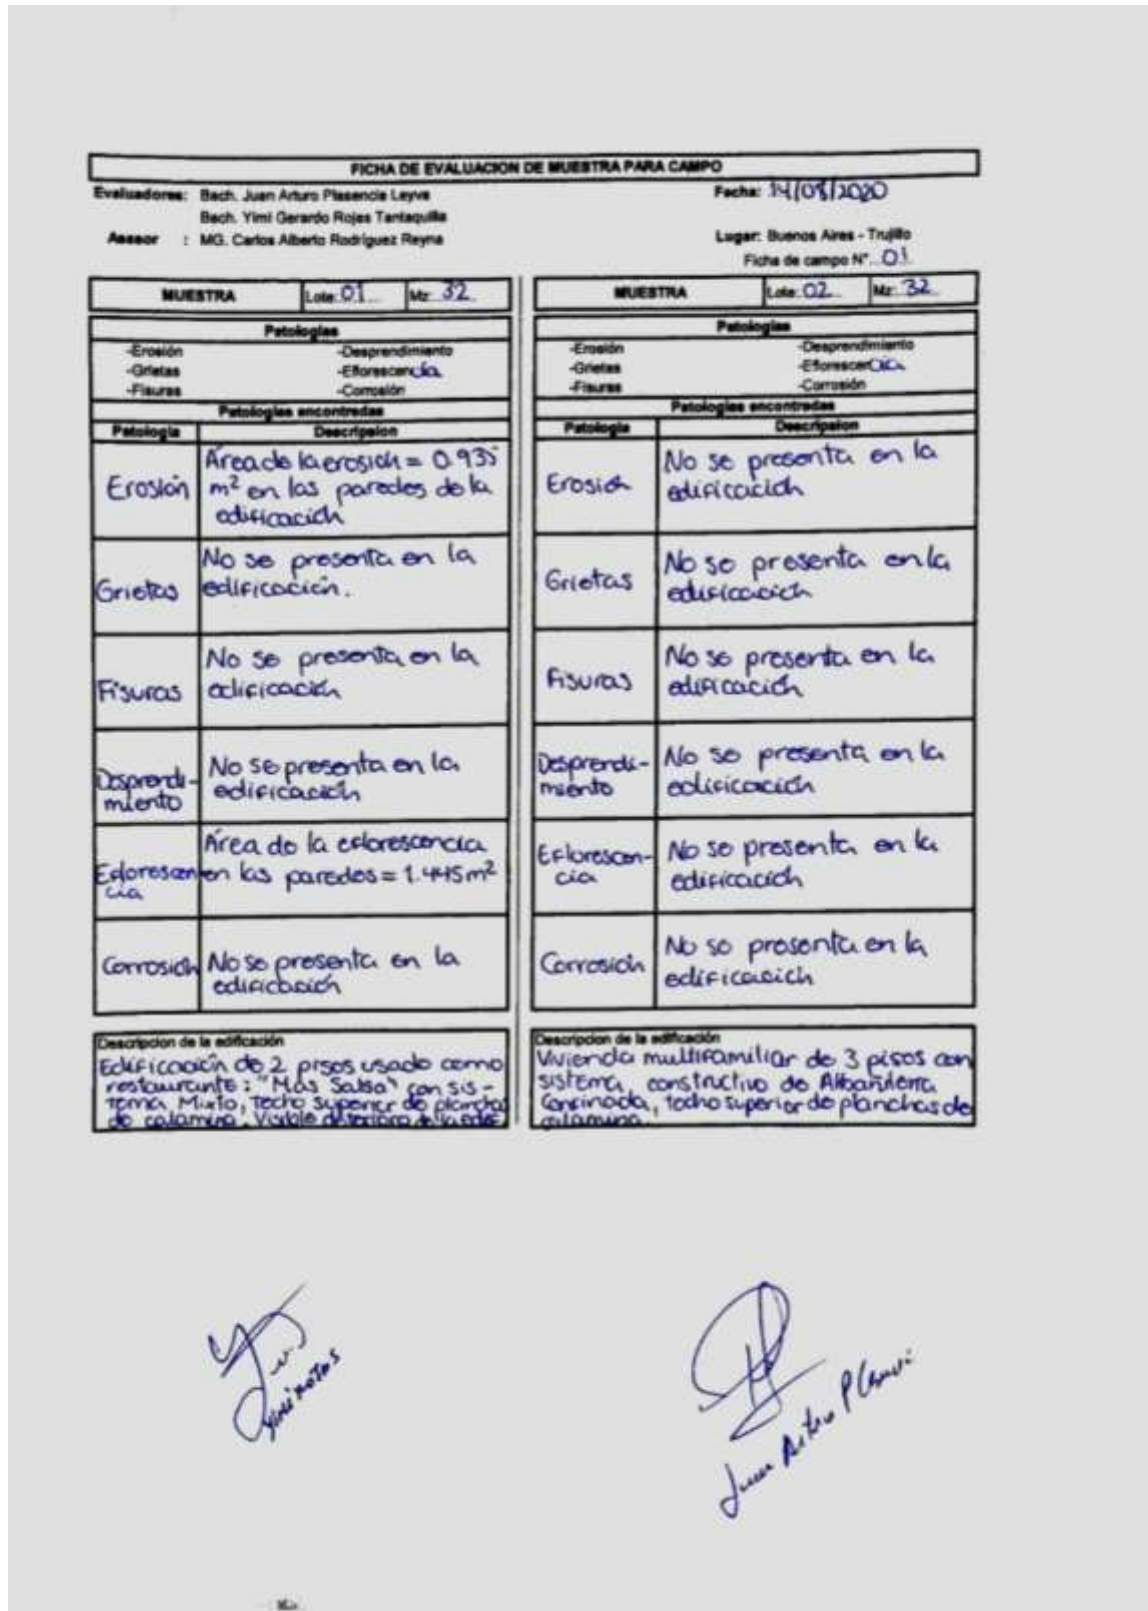 FICHA DE EVALUACION DE MUESTRA PARA CAMPO
Evaluadores: Bach. Juan Arturo Plasencia Leyva
Bach. Yimi Gerardo Rojas Tantaquilla
Asesor : MG. Carlos Alberto Rodríguez Reyna
Fecha: 14/08/2020
Lugar: Buenos Aires - Trujillo
Ficha de campo N°. 01
MUESTRA Lote: 01 Mz: 32
Patologías
-Erosión -Desprendimiento
-Grietas -Eflorescencia
-Fisuras -Corrosión
Patologías encontradas
Patología Descripsion
Erosión
Área de la erosión = 0.935
m² en las paredes de la
edificación
Grietas
No se presenta en la
edificación.
Fisuras
No se presenta en la
edificación
Desprendi-
miento
No se presenta en la
edificación
Eflorescen-
cia
Área de la eflorescencia
en las paredes = 1.445 m²
Corrosión
No se presenta en la
edificación
Descripcion de la edificación
Edificación de 2 pisos usado como
restaurante: "Mas Salsa" con sis-
tema Mixto, Techo superior de planchas
de calamina. Visible deterioro de la
MUESTRA Lote: 02 Mz: 32
Patologías
-Erosión -Desprendimiento
-Grietas -Eflorescencia
-Fisuras -Corrosión
Patologías encontradas
Patología Descripsion
Erosión
No se presenta en la
edificación
Grietas
No se presenta en la
edificación
Fisuras
No se presenta en la
edificación
Desprendi-
miento
No se presenta en la
edificación
Eflorescen-
cia
No se presenta en la
edificación
Corrosión
No se presenta en la
edificación
Descripcion de la edificación
Vivienda multifamiliar de 3 pisos con
sistema constructivo de Albañilería
Confinada, techo superior de planchas de
calamina.
Juan Arturo